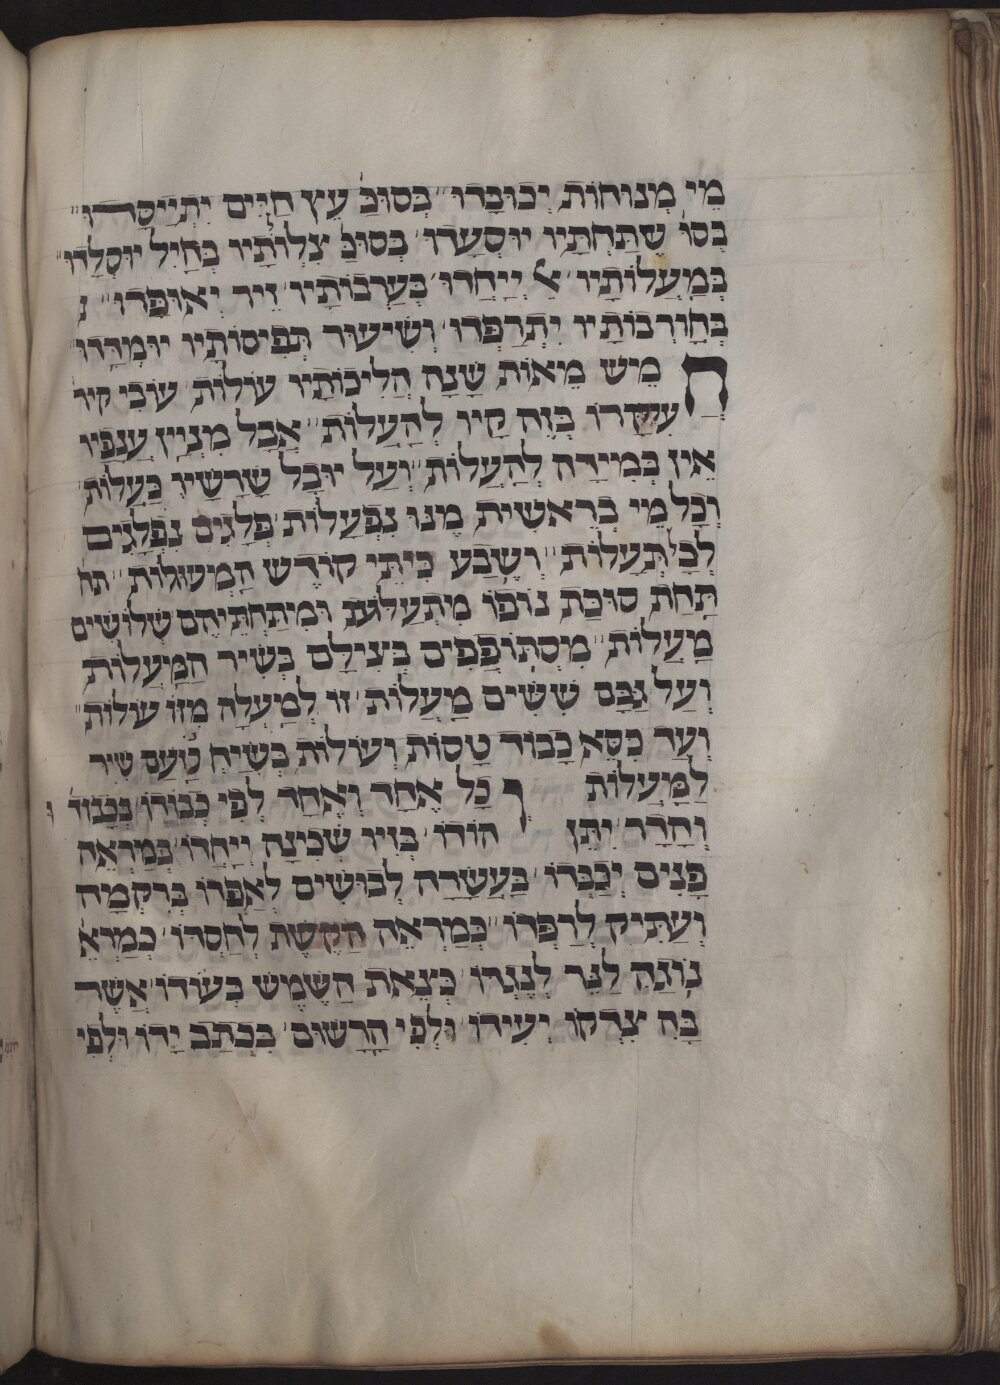 מֵי מְנוּחוֹת יְכוּבָּדוּ״ בְּסוֹכֵּ עֵץ חַיִּים יִתְיַיסָּדוּ״
בְּסוֹ שֶׁתַּחְתָּיו יוּסְעָדוּ׳ בְּסוֹכֵּ צִלּוֹתָיו בְּחַיִל יוּסְלָדוּ״
בְּמַעֲלוֹתָיו׳ אֵ יְיַחֲדוּ׳ בַּעֲרֵבוֹתָיו זִיו יְאוּפָּדוּ״
בְּחוּרְבוֹתָיו יִתְרַפְּדוּ׳ וְשִׁיעוּר תְּפִיסוֹתָיו יוּמְדָּדוּ
חֲמֵישׁ מֵאוֹת שָׁנָה הֲלִיכוֹתָיו עוֹלוֹת׳ עוֹבִי קִיר
עִיקָּרוֹ בְּזֶה קַיו לְהַעֲלוֹת״ אֲבָל מִנְיַן עֲנָפָיו
אֵין בְּמִידָה לְהַעֲלוֹת״ וְעַל יוּבַל שָׁרָשָׁיו בַּעֲלוֹת׳
וְכָל מֵי בְרֵאשִׁית מֶנּוּ נִפְעָלוֹת׳ פְּלָגִים נִפְלָגִים
לְכָל תְּעָלוֹת״ וְשֶׁבַע כִּיתֵּי קוֹדֶשׁ הַמְעוּלּוֹת״
תַּחַת סוּכַּת נוֹפוֹ מִתְעַלְּגֹת וּמִתַּחְתֵּיהֶם שְׁלוֹשִׁים
מַעֲלוֹת״ מִסְתּוֹפְפִים בְּצִילָּם בְּשִׁיר הַמַּעֲלוֹת
וְעַל גַּבָּם שִׁשִּׁים מַעֲלוֹת׳ זוֹ לְמַעְלָה מִזּוֹ עוֹלוֹת״
וְעַד כִּסֵּא כָבוֹד טָסוֹת וְעוֹלוֹת בְּשִׂיחַ נוֹעַם שִׁיר
לַמַּעֲלוֹת כָּל אֶחָד וְאֶחָד לְפִי כְבוֹדוֹ׳ בְּכָבוֹד
וְהָדָר יִתֵּן הוֹדוֹ׳ בְּזִיו שְׁכִינָה יְיַחֲדוֹ׳ בְּמַרְאֵה
פָנִים יְכַבְּדוֹ׳ בַּעֲשָׂרָה לְבוּשִׁים לְאַפְּדוֹ׳ בְּרִקְמָה
וְעַתִּיק לְרַפְּדוֹ״ כְּמַרְאֵה הַקֶּשֶׁת לְחַסְּדוֹ׳ כְּמַרְאֵ
נוֹגַהּ לַנֵּר לְנֶגְדּוֹ׳ כְּצֵאת הַשֶּׁמֶשׁ בְּעוֹדוֹ׳ אֲשֶׁר
בָּהּ צִדְקוֹ יְעִידוֹ׳ וּלְפִי הָרָשׁוּם׳ בִּכְתַב יָדוֹ וּלְפִי